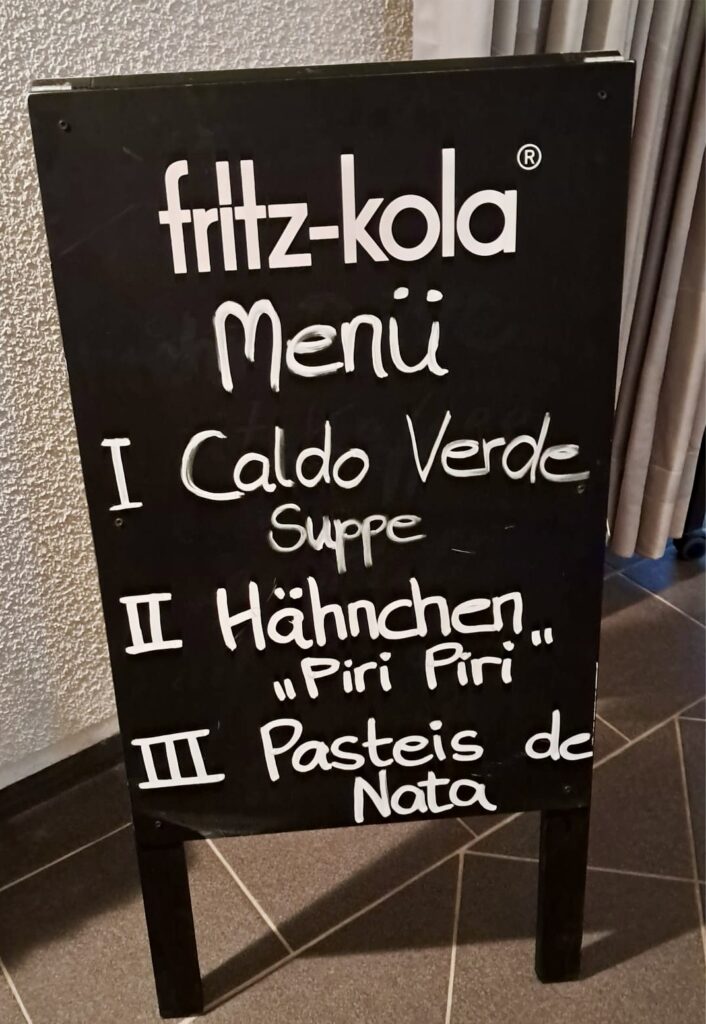 fritz-kola®
Menü
I Caldo Verde
Suppe
II Hähnchen
„Piri Piri“
III Pasteis de
Nata